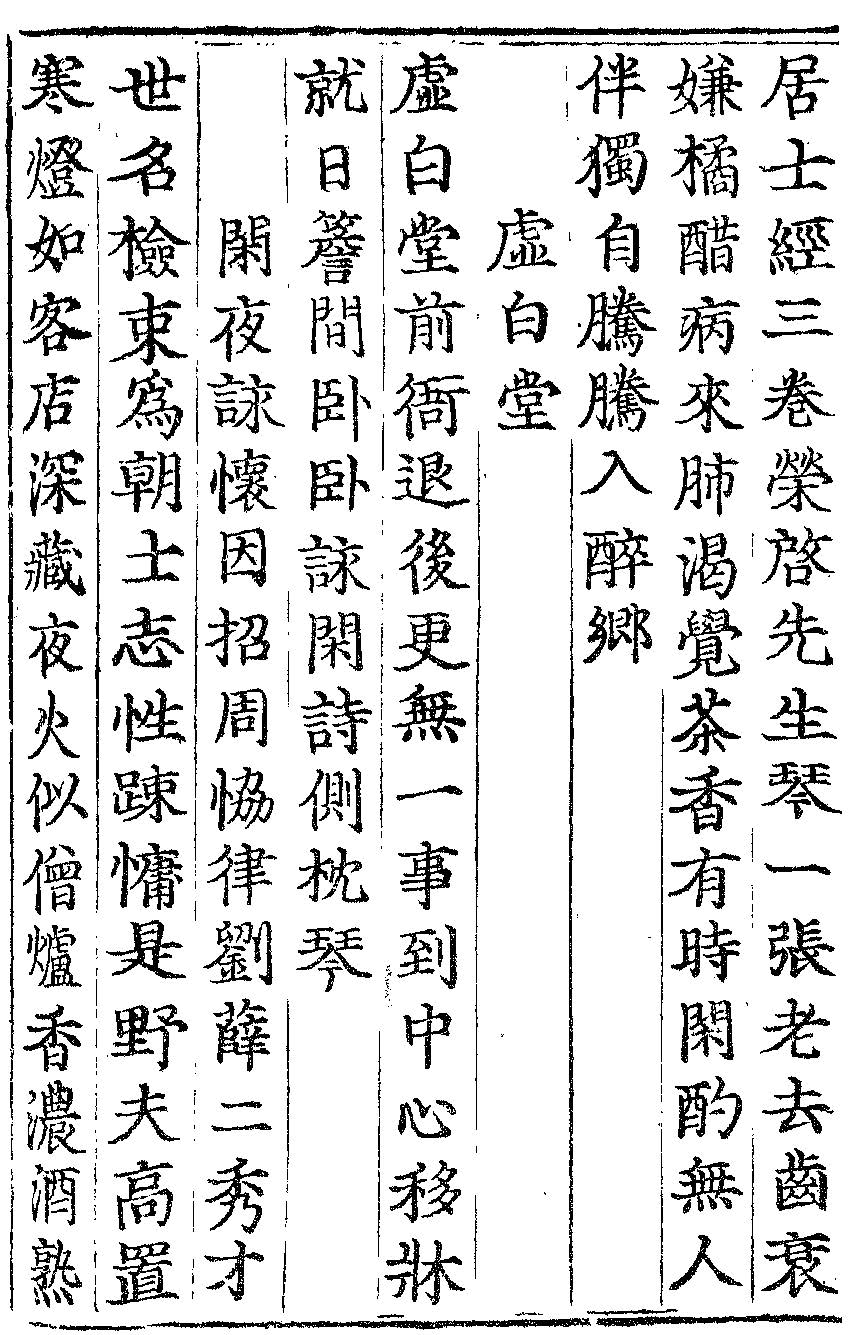 居士經三卷榮啓先生琴一張老去齒衰
嫌橘醋病來肺渴覺茶香有時閑酌無人
伴獨自騰騰入醉鄉
虛白堂
虛白堂前衙退後更無一事到中心移牀
就日簷間卧卧詠閑詩側枕琴
閑夜詠懷因招周恊律劉薛二秀才
世名檢束爲朝士志性踈慵是野夫高置
寒燈如客店深藏夜火似僧爐香濃酒熟